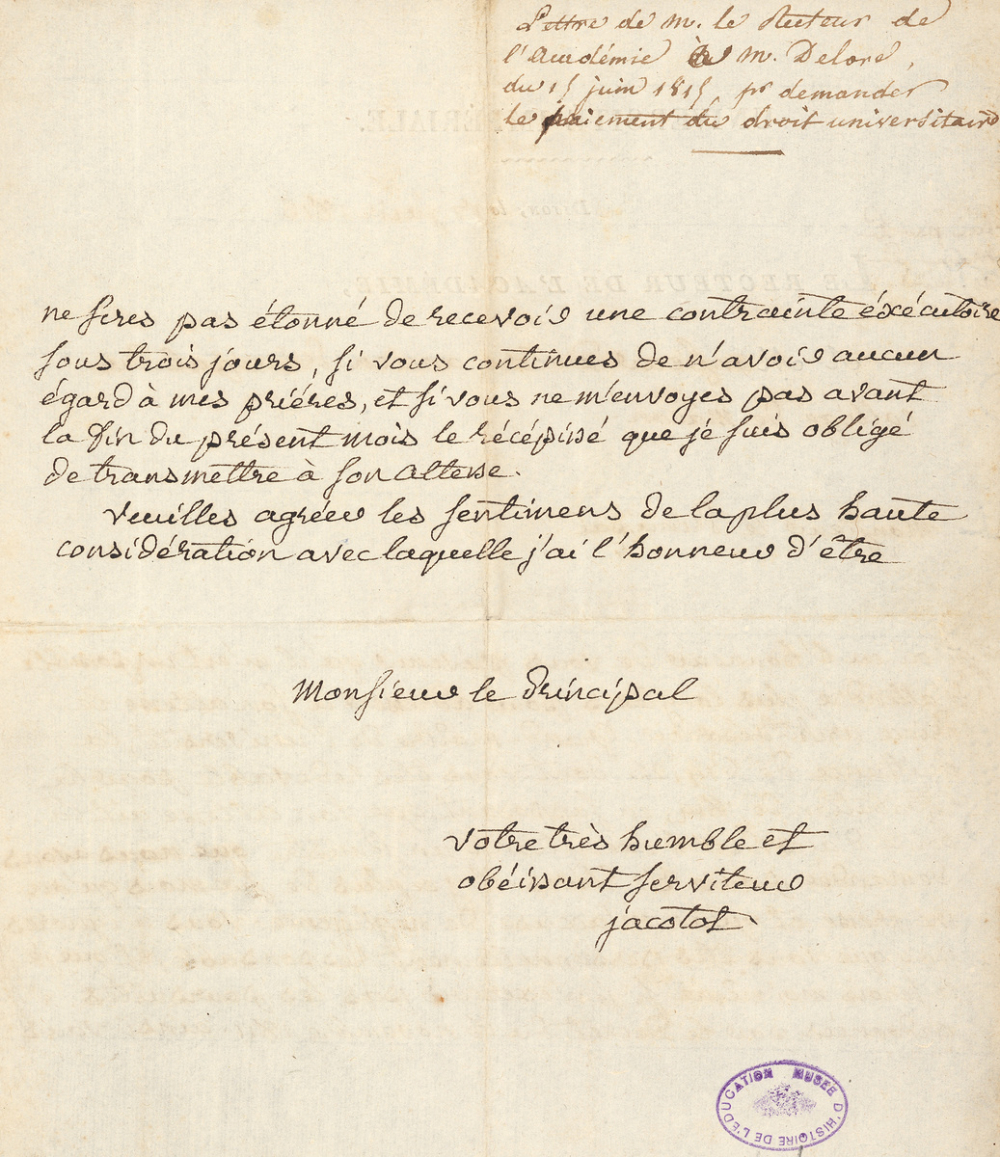 Lettre de m. le Recteur de
l'Académie à m. Deloré,
du 15 juin 1815, pr demander
le paiement du droit universitaire
ne seres pas étonné de recevoir une contrainte éxécutoire
sous trois jours, si vous continues de n'avoir aucun
égard à mes priéres, et si vous ne m'envoyes pas avant
la fin du présent mois le récépissé que je suis obligé
de transmettre à son altesse.
Veuilles agréer les sentimens de la plus haute
considération avec laquelle j'ai l'honneur d'être
Monsieur le Principal
votre très humble et
obéissant serviteur
jacotot
MUSÉE D'HISTOIRE DE L'ÉDUCATION